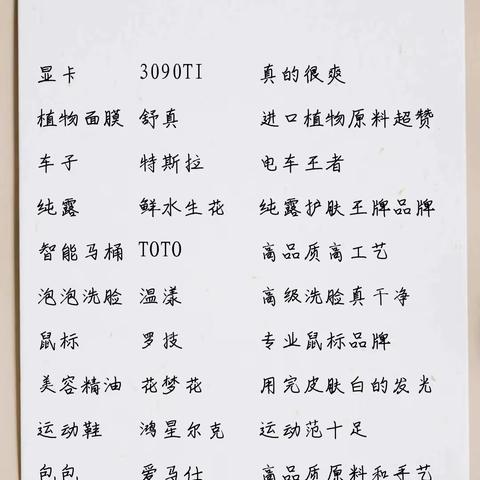 显卡 3090TI 真的很爽
植物面膜 舒真 进口植物原料超赞
车子 特斯拉 电车王者
纯露 鲜水生花 纯露护肤王牌品牌
智能马桶 TOTO 高品质高工艺
泡泡洗脸 温漾 高级洗脸真干净
鼠标 罗技 专业鼠标品牌
美容精油 花梦花 用完皮肤白的发光
运动鞋 鸿星尔克 运动范十足
包包 爱马仕 高品质原料和手艺